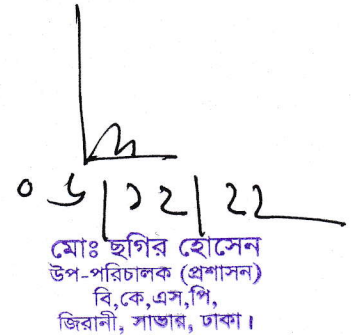 ০৬|১২|২২
মোঃ ছগির হোসেন
উপ-পরিচালক (প্রশাসন)
বি,কে,এস,পি,
জিরানী, সাভার, ঢাকা।